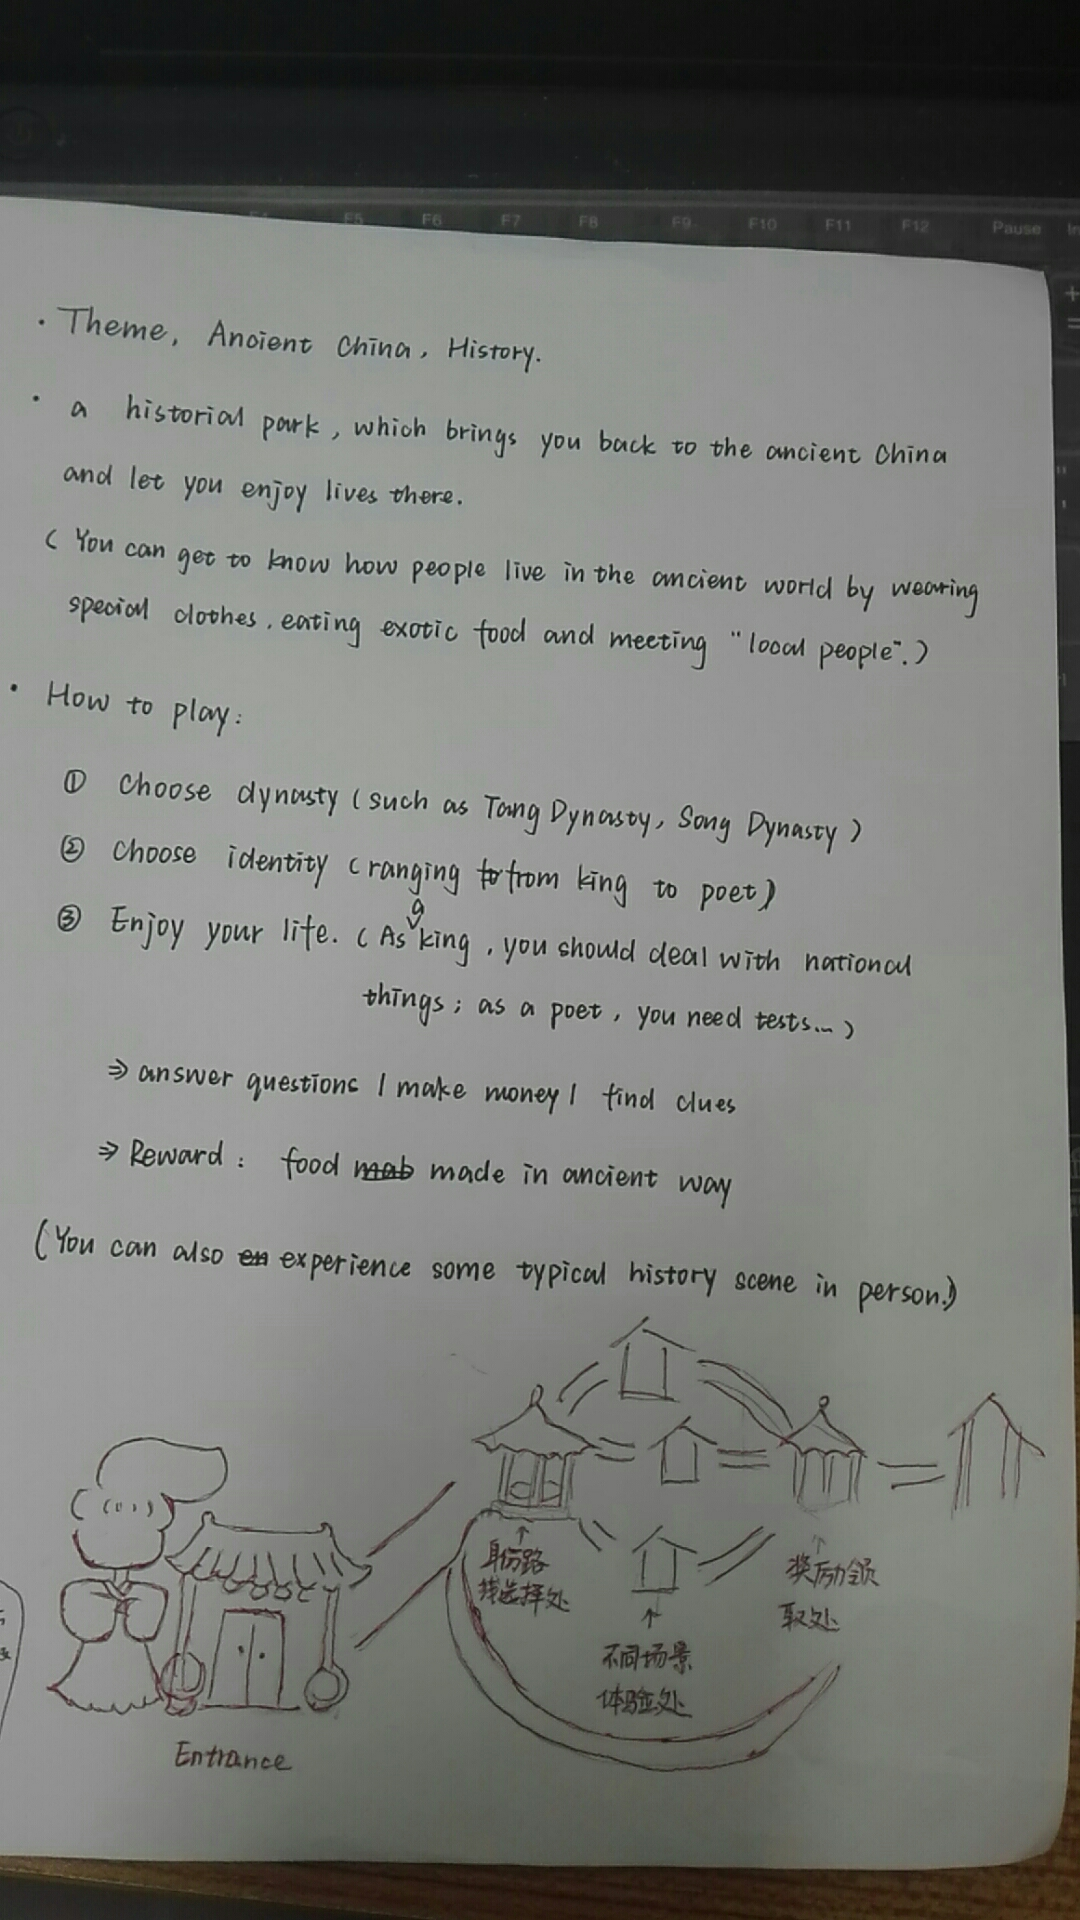 F4 F5 F6 F7 F8 F9 F10 F11 F12 Pause In
· Theme, Ancient China, History.
· a historial park, which brings you back to the ancient China
and let you enjoy lives there.
( You can get to know how people live in the ancient world by wearing
special clothes, eating exotic food and meeting "local people".)
· How to play:
① Choose dynasty (such as Tang Dynasty, Song Dynasty)
② Choose identity (ranging from king to poet)
③ Enjoy your life. (As a king, you should deal with national
things; as a poet, you need tests...)
⇒ answer questions / make money / find clues
⇒ Reward: food made in ancient way
(You can also experience some typical history scene in person.)
身份路
线选择处
奖励领
取处
不同场景
体验处
Entrance